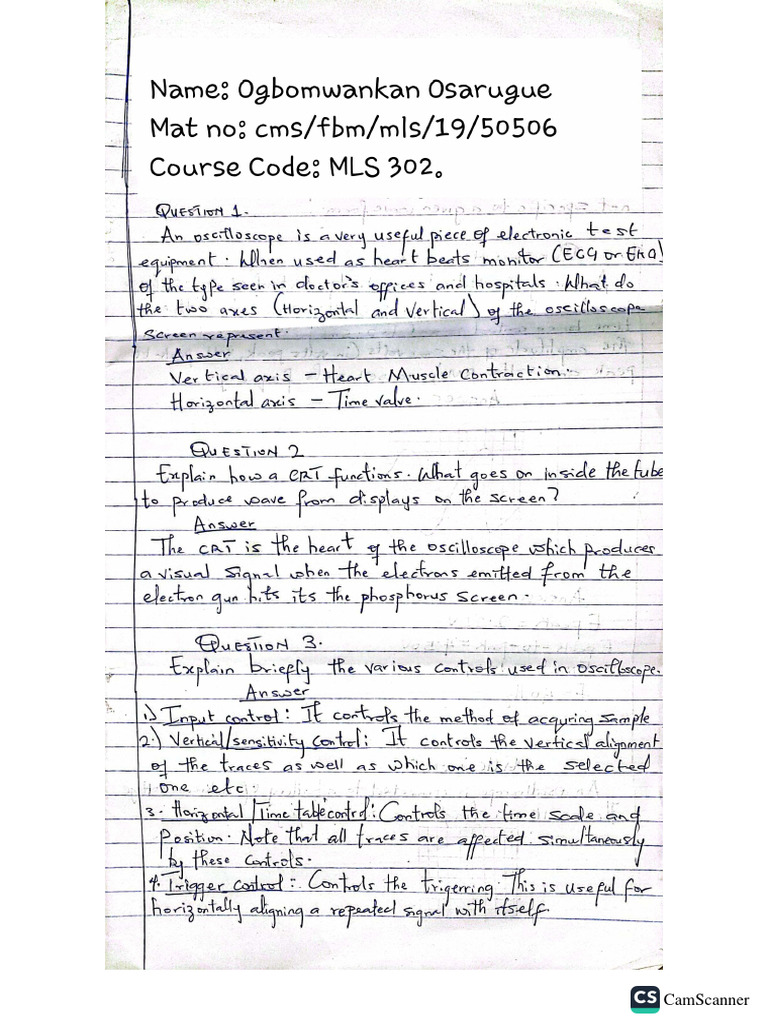 Name: Ogbomwankan Osarugue
Mat no: cms/fbm/mls/19/50506
Course Code: MLS 302.
QUESTION 1.
An oscilloscope is a very useful piece of electronic test
equipment. When used as heart beats monitor (ECG or EKG)
of the type seen in doctor's offices and hospitals. What do
the two axes (Horizontal and Vertical) of the oscilloscope
screen represent.
Answer
Vertical axis - Heart Muscle Contraction.
Horizontal axis - Time valve.
QUESTION 2
Explain how a CRT functions. What goes on inside the tube
to produce wave from displays on the screen?
Answer
The CRT is the heart of the oscilloscope which produces
a visual signal when the electrons emitted from the
electron gun hits its the phosphorus screen.
QUESTION 3.
Explain briefly the various controls used in oscilloscope.
Answer
1.) Input control: It controls the method of acquring sample
2.) Vertical/sensitivity control: It controls the vertical alignment
of the traces as well as which one is the selected
one etc
3. Horizontal/Time table control: Controls the time scale and
Position. Note that all traces are affected simultaneously
by these controls.
4. Trigger control:- Controls the trigerring. This is useful for
horizontally aligning a repeated signal with itself.
CS CamScanner